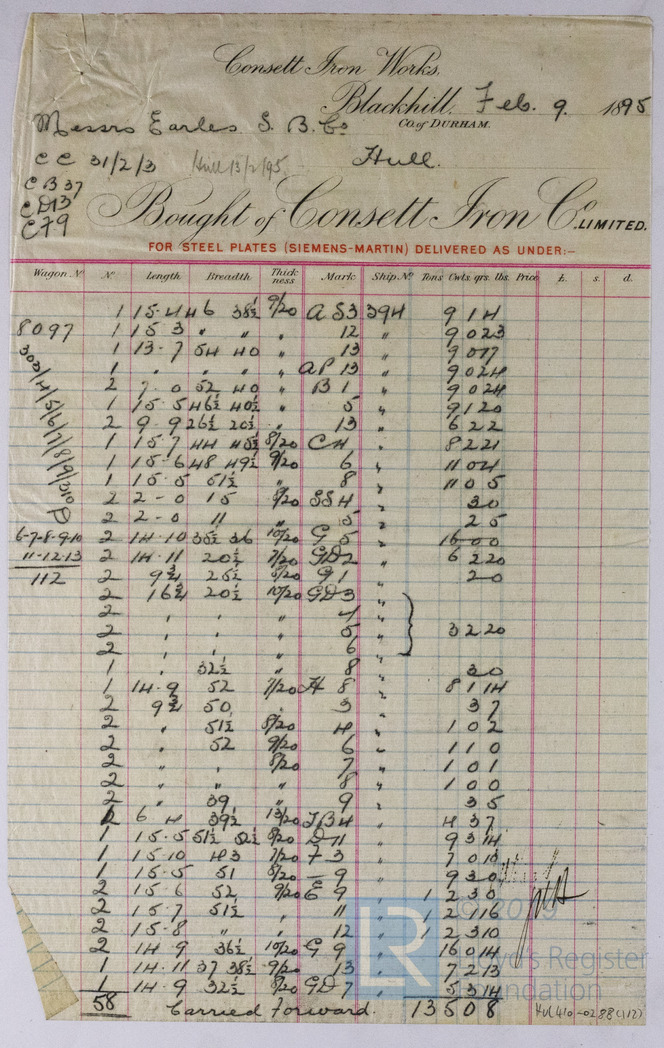 Consett Iron Works,
Blackhill, Feb. 9. 1895
Co. of DURHAM.
Messrs Earles S. B. Co
Hull.
CC 31/2/3 Hull 13/2/95
CB 37
CD 13
CF 9
Bought of Consett Iron Co. LIMITED.
FOR STEEL PLATES (SIEMENS-MARTIN) DELIVERED AS UNDER:-
Wagon No No Length Breadth Thickness Mark Ship No Tons Cwts. qrs. lbs. Price £. s. d.
1 15-4 46 38½ 9/20 A S3 394 9 1 4
8097 1 15 3 " " " 12 " 9 0 23
1 13-7 54 40 " 13 " 9 0 17
1 " " " " AP 13 " 9 0 24
2 7-0 52 40 " B 1 " 9 0 24
1 15-5 46½ 40½ " 5 " 9 1 20
2 9-9 26½ 20½ " 13 " 6 2 2
1 15-7 44 45½ 8/20 C 4 " 8 2 21
1 15-6 48 49½ 9/20 6 " 11 0 4
1 15-5 51½ " 8 " 11 0 5
2 2-0 15 9/20 SS 4 " 3 0
2 2-0 11 " 5 " 2 5
6-7-8-9-10 2 14-10 35½ 36 10/20 G 5 " 16 0 0
11-12-13 2 14-11 20½ 7/20 GD 2 " 6 2 20
112 2 9¾ 25½ 8/20 G 1 " 2 0
2 16¾ 20½ 10/20 GD 3 "
2 " " " 4 "
2 " " " 5 " 3 2 20
2 " " " 6 "
1 " 32½ " 8 " 3 0
1 14-9 52 7/20 H 8 " 8 1 14
2 9¾ 50 " 3 " 3 7
2 " 51½ 8/20 4 " 1 0 2
2 " 52 9/20 6 " 1 1 0
2 " " 8/20 7 " 1 0 1
2 " " " 8 " 1 0 0
2 " 39 " 9 " 3 5
6 4 39½ 13/20 JB 4 " 4 3 7
1 15-5 51½ 52½ 8/20 D 11 " 9 3 14
1 15-10 43 7/20 F 3 " 7 0 10
1 15-5 51 8/20 — 9 " 9 3 0
2 15-6 52 9/20 E 9 " 1 2 3 0
2 15-7 51½ " 11 " 1 2 1 16
2 15-8 " " 12 " 1 2 3 10
2 14 9 36½ 10/20 G 9 " 16 0 14
1 14-11 37 38½ 9/20 13 " 7 2 13
1 14-9 32½ 8/20 GD 7 " 5 3 14
58 Carried forward. 13 5 0 8
LR
© 2019
Lloyd's Register
Foundation
Hul 410-0288 (1/2)